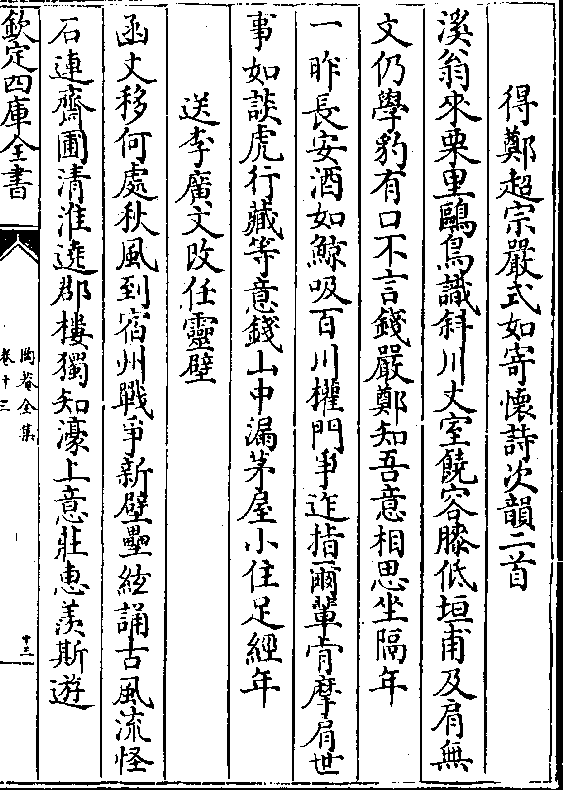 得鄭超宗嚴式如寄懷詩次韻二首
溪翁來栗里鷗鳥識斜川丈室饒容膝低垣甫及肩無
文仍學豹有口不言錢嚴鄭知吾意相思坐隔年
一昨長安酒如鯨吸百川權門爭迮指爾輩肯摩肩世
事如談虎行藏等意錢山中漏茅屋小住足經年
送李廣文改任靈壁
函丈移何處秋風到宿州戰爭新壁壘絃誦古風流怪
石連齋圃清淮遶郡樓獨知濠上意莊惠羨斯遊
欽定四庫全書
陶菴全集
卷十三
十三